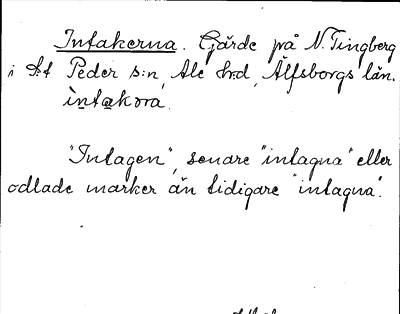 Intakerna. Gärde på N. Tingberg
i St Peder s:n, Ale hrd, Älfsborgs län.
ìntakora.
"Intagen", senare "intagna" eller
odlade marker än tidigare "intagna".